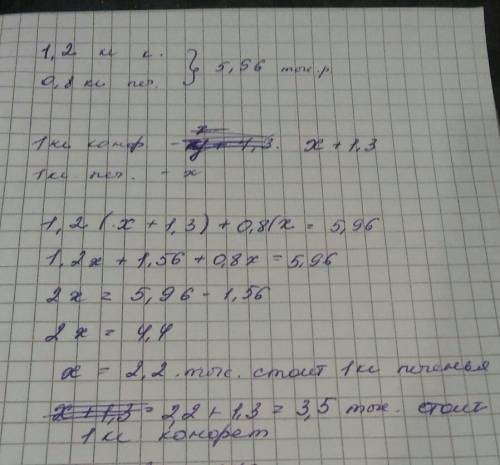 1,2 кг к. } 5,96 тыс.р.
0,8 кг печ.
1 кг конф. - x + 1,3
1 кг печ. - x
1,2 (x + 1,3) + 0,8(x = 5,96
1,2x + 1,56 + 0,8x = 5,96
2x = 5,96 - 1,56
2x = 4,4
x = 2,2 тыс. стоит 1 кг печенья
x + 1,3 = 2,2 + 1,3 = 3,5 тыс. стоит
1 кг конфрет